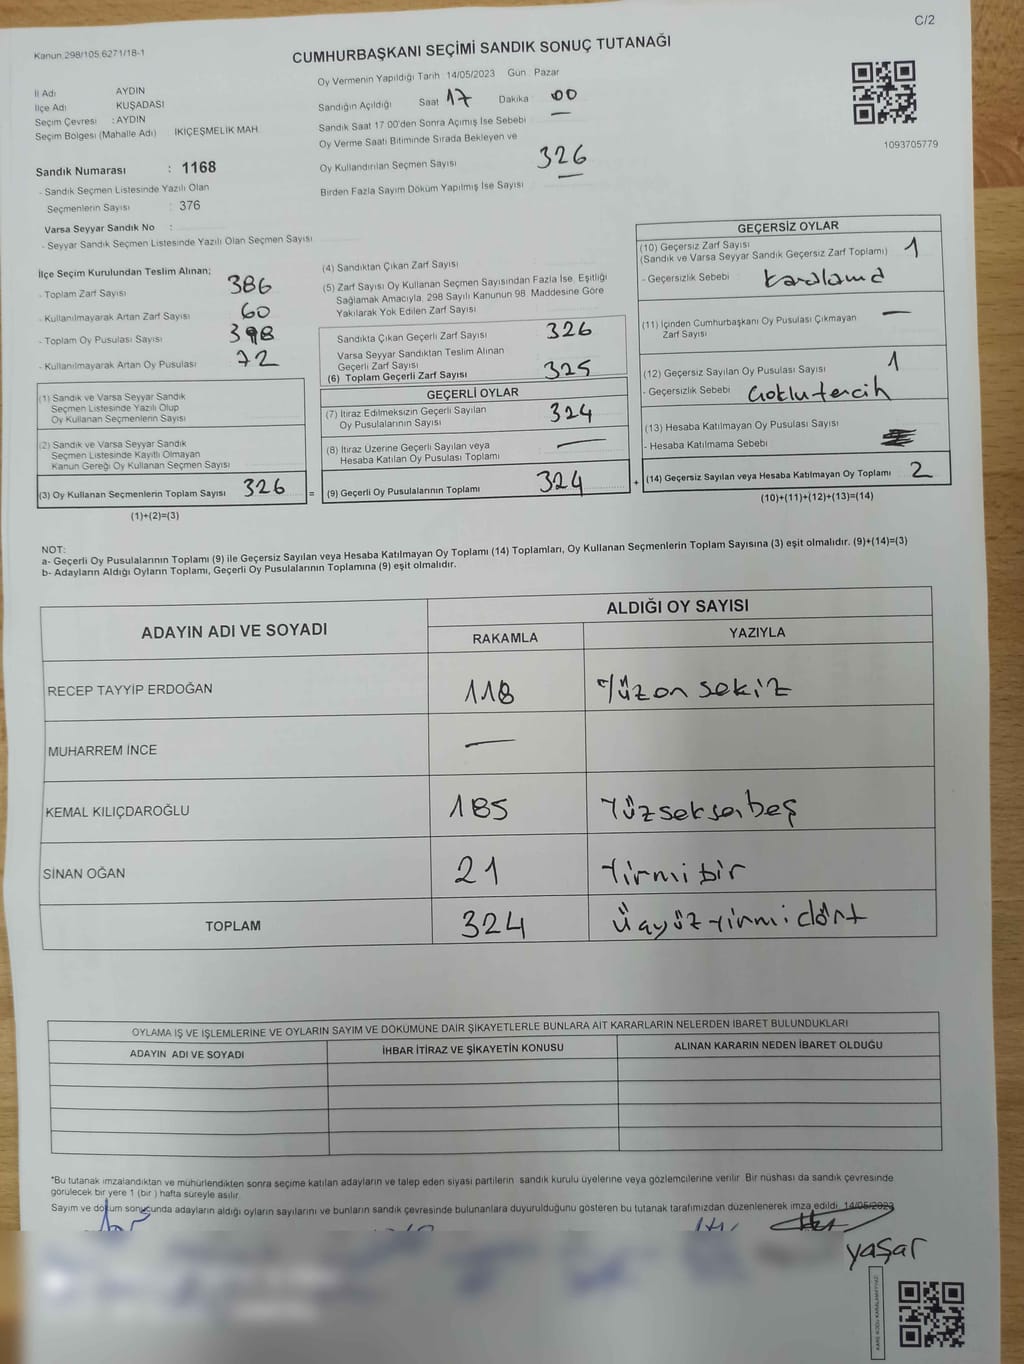 C/2
Kanun 298/105,6271/18-1
CUMHURBAŞKANI SEÇİMİ SANDIK SONUÇ TUTANAĞI
İl Adı AYDIN
İlçe Adı KUŞADASI
Seçim Çevresi : AYDIN
Seçim Bölgesi (Mahalle Adı) İKİÇEŞMELİK MAH.
Sandık Numarası : 1168
- Sandık Seçmen Listesinde Yazılı Olan
Seçmenlerin Sayısı : 376
Varsa Seyyar Sandık No :
- Seyyar Sandık Seçmen Listesinde Yazılı Olan Seçmen Sayısı
Oy Vermenin Yapıldığı Tarih 14/05/2023 Gün Pazar
Sandığın Açıldığı Saat 17 Dakika 00
Sandık Saat 17:00'den Sonra Açımış İse Sebebi —
Oy Verme Saati Bitiminde Sırada Bekleyen ve
Oy Kullandırılan Seçmen Sayısı 326
Birden Fazla Sayım Döküm Yapılmış İse Sayısı —
1093705779
İlçe Seçim Kurulundan Teslim Alınan;
- Toplam Zarf Sayısı 386
- Kullanılmayarak Artan Zarf Sayısı 60
- Toplam Oy Pusulası Sayısı 398
- Kullanılmayarak Artan Oy Pusulası 72
(1) Sandık ve Varsa Seyyar Sandık
Seçmen Listesinde Yazılı Olup
Oy Kullanan Seçmenlerin Sayısı
(2) Sandık ve Varsa Seyyar Sandık
Seçmen Listesinde Kayıtlı Olmayan
Kanun Gereği Oy Kullanan Seçmen Sayısı
(3) Oy Kullanan Seçmenlerin Toplam Sayısı 326 =
(1)+(2)=(3)
(4) Sandıktan Çıkan Zarf Sayısı
(5) Zarf Sayısı Oy Kullanan Seçmen Sayısından Fazla İse, Eşitliği
Sağlamak Amacıyla, 298 Sayılı Kanunun 98. Maddesine Göre
Yakılarak Yok Edilen Zarf Sayısı
Sandıkta Çıkan Geçerli Zarf Sayısı 326
Varsa Seyyar Sandıktan Teslim Alınan
Geçerli Zarf Sayısı
(6) Toplam Geçerli Zarf Sayısı 325
GEÇERLİ OYLAR
(7) İtiraz Edilmeksizin Geçerli Sayılan
Oy Pusulalarının Sayısı 324
(8) İtiraz Üzerine Geçerli Sayılan veya
Hesaba Katılan Oy Pusulası Toplamı —
(9) Geçerli Oy Pusulalarının Toplamı 324 +
GEÇERSİZ OYLAR
(10) Geçersiz Zarf Sayısı 1
(Sandık ve Varsa Seyyar Sandık Geçersiz Zarf Toplamı)
- Geçersizlik Sebebi karalama
(11) İçinden Cumhurbaşkanı Oy Pusulası Çıkmayan —
Zarf Sayısı
(12) Geçersiz Sayılan Oy Pusulası Sayısı 1
- Geçersizlik Sebebi Çoklu tercih
(13) Hesaba Katılmayan Oy Pusulası Sayısı
- Hesaba Katılmama Sebebi
(14) Geçersiz Sayılan veya Hesaba Katılmayan Oy Toplamı 2
(10)+(11)+(12)+(13)=(14)
NOT:
a- Geçerli Oy Pusulalarının Toplamı (9) ile Geçersiz Sayılan veya Hesaba Katılmayan Oy Toplamı (14) Toplamları, Oy Kullanan Seçmenlerin Toplam Sayısına (3) eşit olmalıdır. (9)+(14)=(3)
b- Adayların Aldığı Oyların Toplamı, Geçerli Oy Pusulalarının Toplamına (9) eşit olmalıdır.
ADAYIN ADI VE SOYADI ALDIĞI OY SAYISI
RAKAMLA YAZIYLA
RECEP TAYYİP ERDOĞAN 118 Yüzonsekiz
MUHARREM İNCE —
KEMAL KILIÇDAROĞLU 185 Yüzseksenbeş
SİNAN OĞAN 21 Yirmibir
TOPLAM 324 Üçyüzyirmidört
OYLAMA İŞ VE İŞLEMLERİNE VE OYLARIN SAYIM VE DÖKÜMÜNE DAİR ŞİKAYETLERLE BUNLARA AİT KARARLARIN NELERDEN İBARET BULUNDUKLARI
ADAYIN ADI VE SOYADI İHBAR İTİRAZ VE ŞİKAYETİN KONUSU ALINAN KARARIN NEDEN İBARET OLDUĞU
*Bu tutanak imzalandıktan ve mühürlendikten sonra seçime katılan adayların ve talep eden siyasi partilerin sandık kurulu üyelerine veya gözlemcilerine verilir. Bir nüshası da sandık çevresinde
görülecek bir yere 1 (bir ) hafta süreyle asılır.
Sayım ve döküm sonucunda adayların aldığı oyların sayılarını ve bunların sandık çevresinde bulunanlara duyurulduğunu gösteren bu tutanak tarafımızdan düzenlenerek imza edildi. 14/05/2023
yaşar